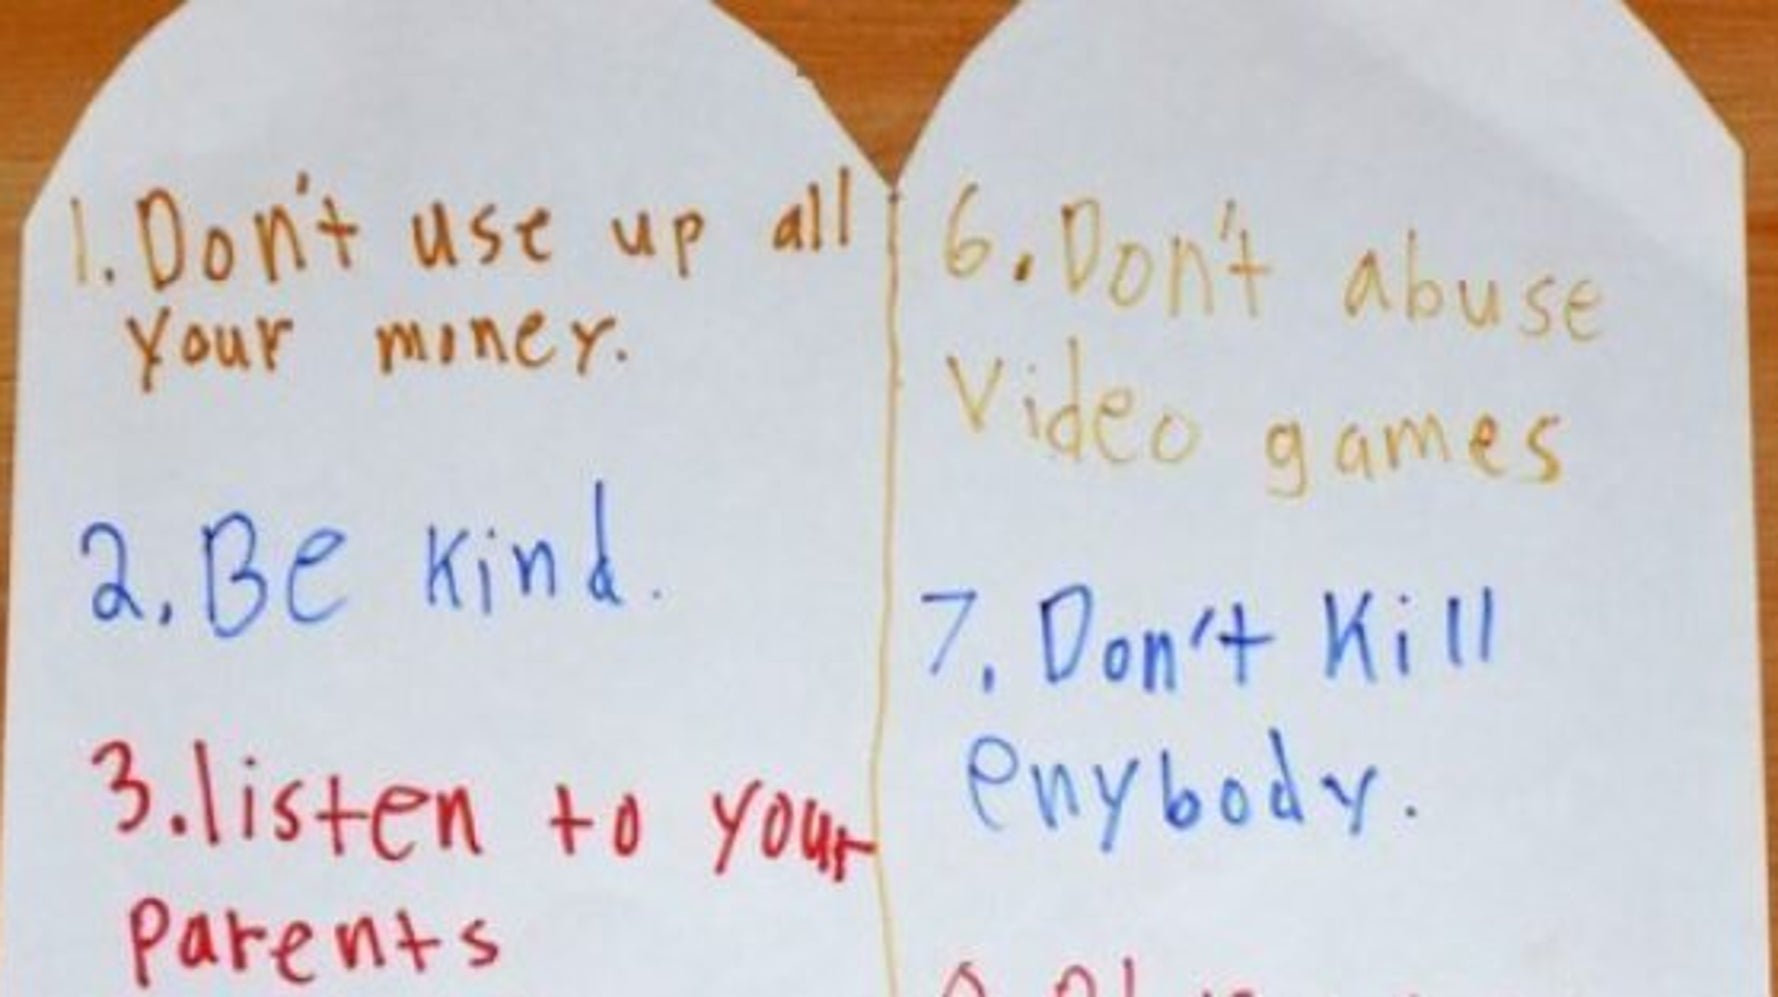 1. Don't use up all
your money.
2. Be kind.
3. listen to your
parents
6. Don't abuse
video games
7. Don't kill
enybody.